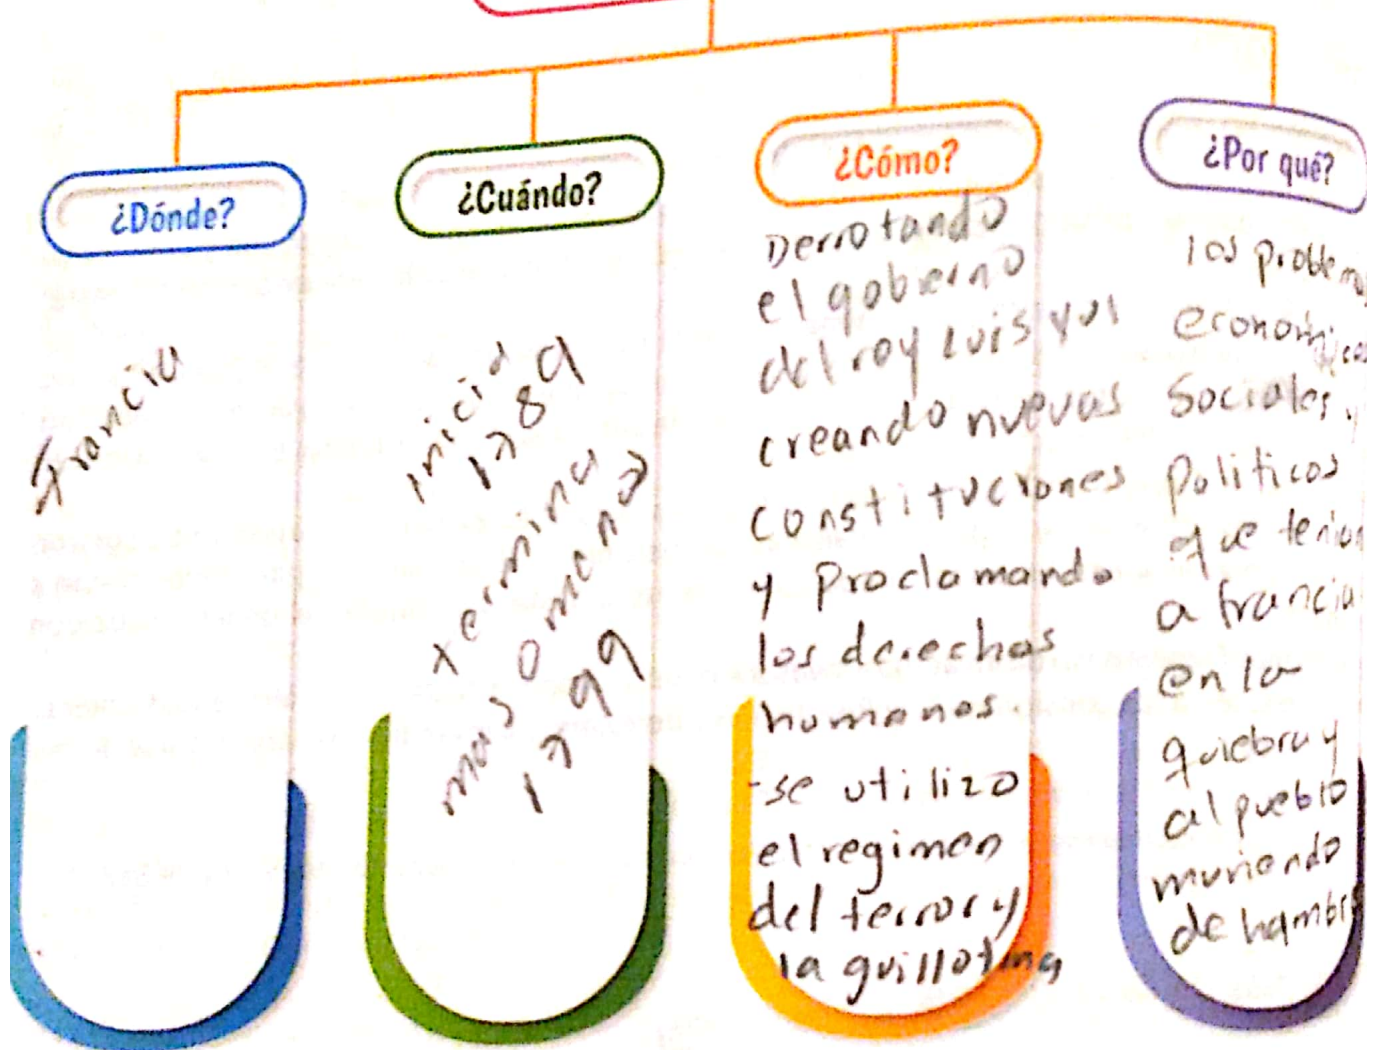 ¿Dónde?
Francia
¿Cuándo?
inicio
1789
termina
mas o meno
1799
¿Cómo?
Derrotando
el gobierno
del rey Luis XVI
creando nuevas
constituciones
y proclamando
los derechos
humanos
-se utilizo
el regimen
del terror y
la guillotina
¿Por qué?
los problemas
economicos
Sociales y
Politicos
que tenian
a francia
en la
quiebra y
al pueblo
muriendo
de hambre